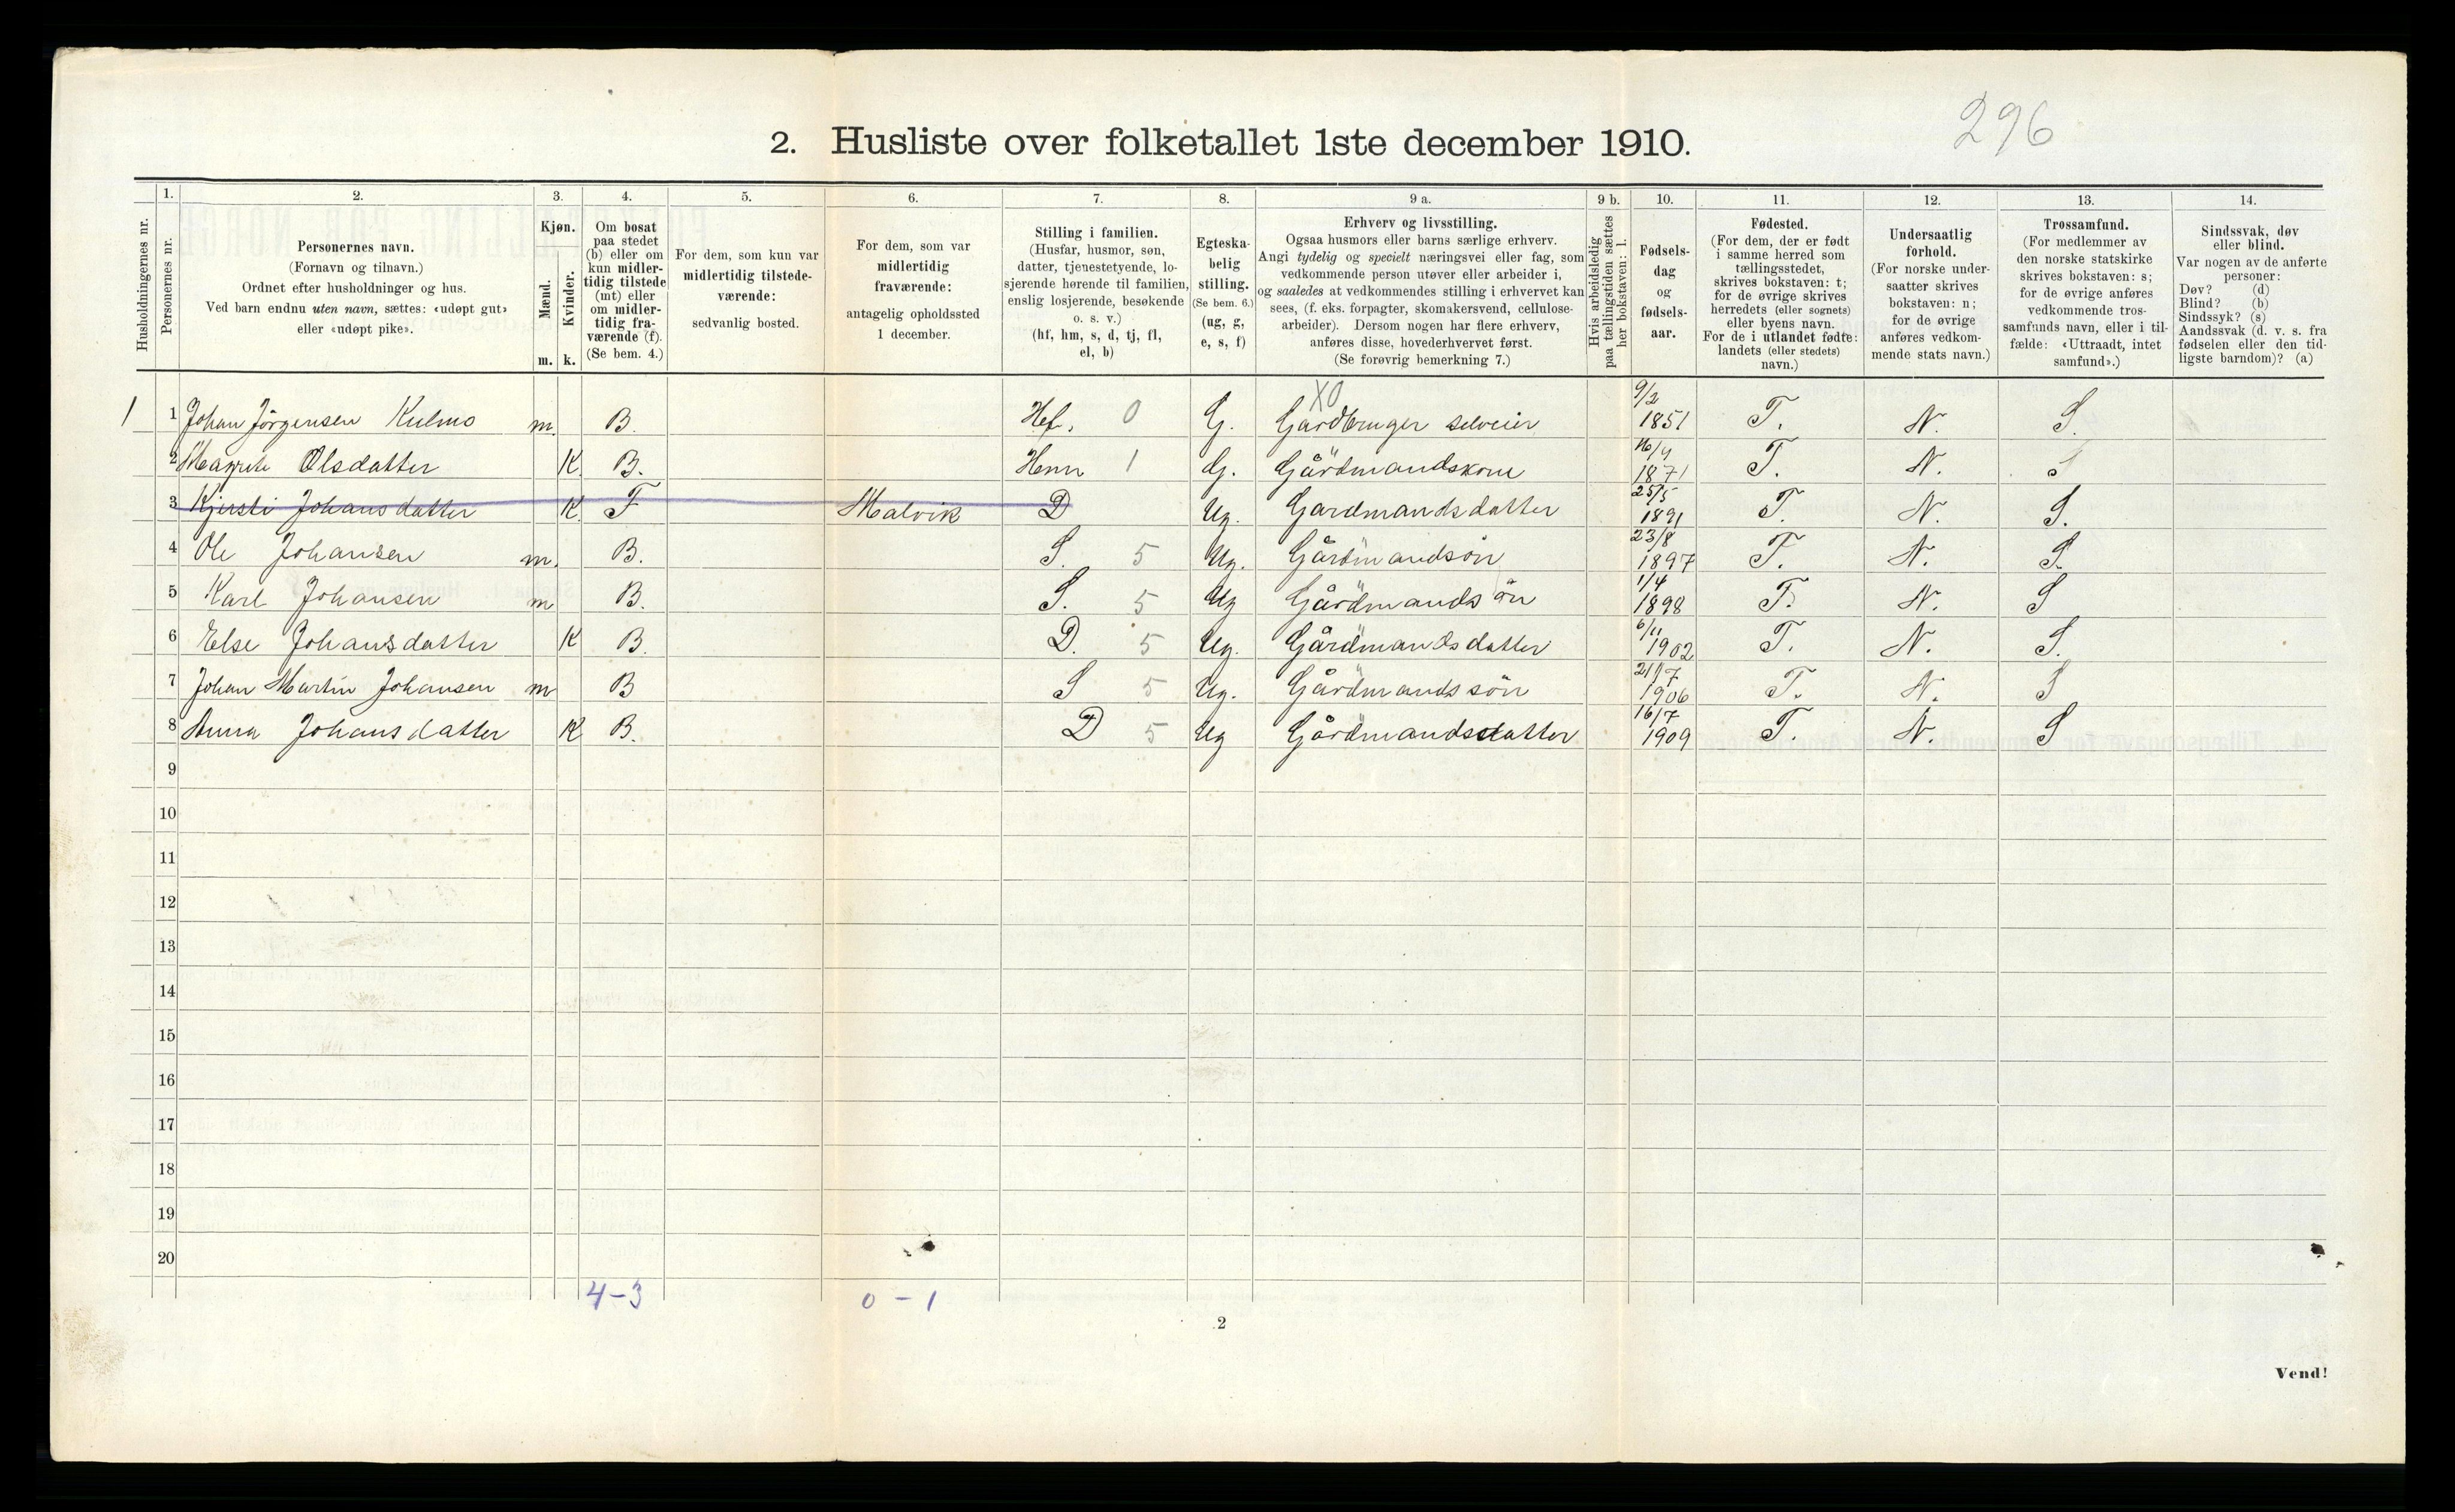 296
2. Husliste over folketallet 1ste december 1910.
Husholdningernes nr.
1.
Personernes nr.
2.
Personernes navn.
(Fornavn og tilnavn.)
Ordnet efter husholdninger og hus.
Ved barn endnu uten navn, sættes: «udøpt gut»
eller «udøpt pike».
3.
Kjøn.
Mænd.
Kvinder.
m. k.
4.
Om bosat
paa stedet
(b) eller om
kun midler-
tidig tilstede
(mt) eller
om midler-
tidig fra-
værende (f).
(Se bem. 4.)
5.
For dem, som kun var
midlertidig tilstede-
værende:
sedvanlig bosted.
6.
For dem, som var
midlertidig
fraværende:
antagelig opholdssted
1 december.
7.
Stilling i familien.
(Husfar, husmor, søn,
datter, tjenestetyende, lo-
sjerende hørende til familien,
enslig losjerende, besøkende
o. s. v.)
(hf, hm, s, d, tj, fl,
el, b)
8.
Egteska-
belig
stilling.
(Se bem. 6.)
(ug, g,
e, s, f)
9 a.
Erhverv og livsstilling.
Ogsaa husmors eller barns særlige erhverv.
Angi tydelig og specielt næringsvei eller fag, som
vedkommende person utøver eller arbeider i,
og saaledes at vedkommendes stilling i erhvervet kan
sees, (f. eks. forpagter, skomakersvend, cellulose-
arbeider). Dersom nogen har flere erhverv,
anføres disse, hovederhvervet først.
(Se forøvrig bemerkning 7.)
9 b.
Hvis arbeidsledig
paa tællingstiden sættes
her bokstaven: l.
10.
Fødsels-
dag
og
fødsels-
aar.
11.
Fødested.
(For dem, der er født
i samme herred som
tællingsstedet,
skrives bokstaven: t;
for de øvrige skrives
herredets (eller sognets)
eller byens navn.
For de i utlandet fødte:
landets (eller stedets)
navn.)
12.
Undersaatlig
forhold.
(For norske under-
saatter skrives
bokstaven: n;
for de øvrige
anføres vedkom-
mende stats navn.)
13.
Trossamfund.
(For medlemmer av
den norske statskirke
skrives bokstaven: s;
for de øvrige anføres
vedkommende tros-
samfunds navn, eller i til-
fælde: «Uttraadt, intet
samfund».)
14.
Sindssvak, døv
eller blind.
Var nogen av de anførte
personer:
Døv? (d)
Blind? (b)
Sindssyk? (s)
Aandssvak (d. v. s. fra
fødselen eller den tid-
ligste barndom)? (a)
1 1 Johan Jörgensen Kulmo m. B. Hef. 0 G. X0 Gårdbruger selveier 9/2 1851 T. N. S.
2 Magrete Olsdatter K. B. Hmr 1 G. Gårdmandskone 1871 T. N. S
3 Kjersti Johansdatter K. F Malvik D Ug. Gardmandsdatter 25/5 1891 T. N. S.
4 Ole Johansen m. B. S. 5 Ug. Gårdmandsön 23/8 1897 T. N. S.
5 Karl Johansen m B. S. 5 Ug Gårdmandsön 1/4 1898 T. N. S
6 Else Johansdatter K B. D. 5 Ug. Gårdmandsdatter 6/11 1902 T. N. S.
7 Johan Martin Johansen m B S 5 Ug. Gårdmandssön 21/7 1906 T. N. S
8 Anna Johansdatter K B. D 5 Ug Gårdmandsdatter 16/7 1909 T. N. S
9
10
11
12
13
14
15
16
17
18
19
20
4-3 0-1
2
Vend!